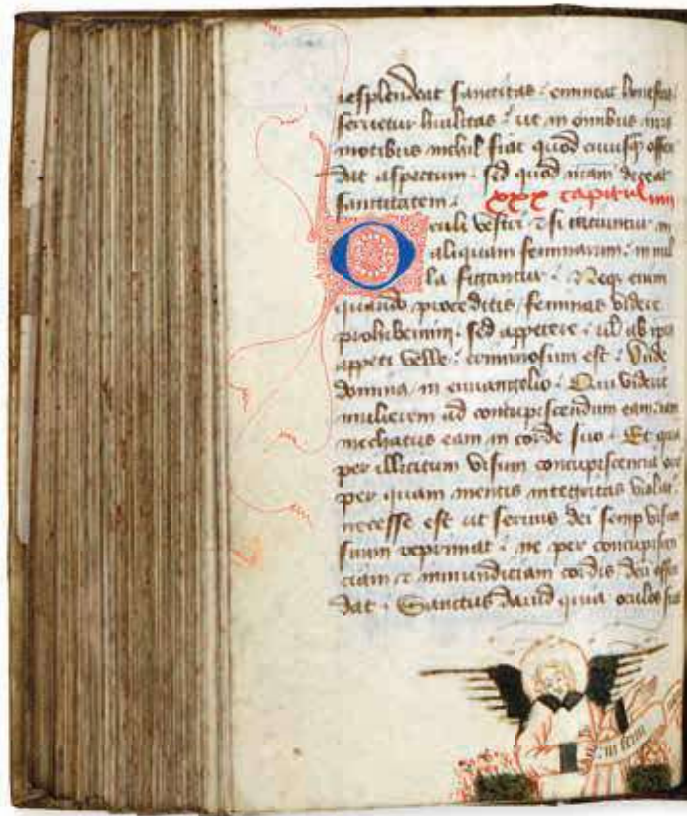 resplendeat sanctitas. emineat honestas
servetur humilitas. ut in omnibus nris
motibus nichil fiat quod cuiusqz offen
dat aspectum. sed quod nram deceat
sanctitatem. xxx capitulum
Oculi vestri & si iaciuntur in
aliquam feminarum. in nul
la figantur. Neqz enim
quando proceditis feminas videre
prohibemini. sed appetere. ul ab ipis
appeti velle. criminosum est. Unde
domin in euuangelio. Qui viderit
mulierem ad concupiscendum eam iam
mechatus eam in corde suo. Et quia
per illicitum visum concupiscencia
per quam mentis integritas violat
necesse est ut servus dei semp visum
suum reprimat. ne per concupiscen
ciam & inmundiciam cordis deu offen
dat. Sanctus david quia oculos suos